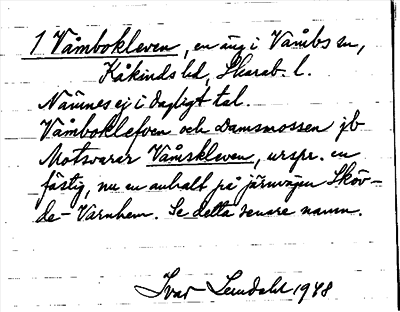 1 Våmbokleven, en äng i Våmbs sn,
Kåkinds hd, Skarab. l.
Nämnes ej i dagligt tal.
Våmboklefven och Damsmossen jb
Motsvarar Våmskleven, urspr. en
fästig, nu en anhalt på järnvägen Sköv-
de - Varnhem. Se detta senare namn.
Ivar Lundahl 1948